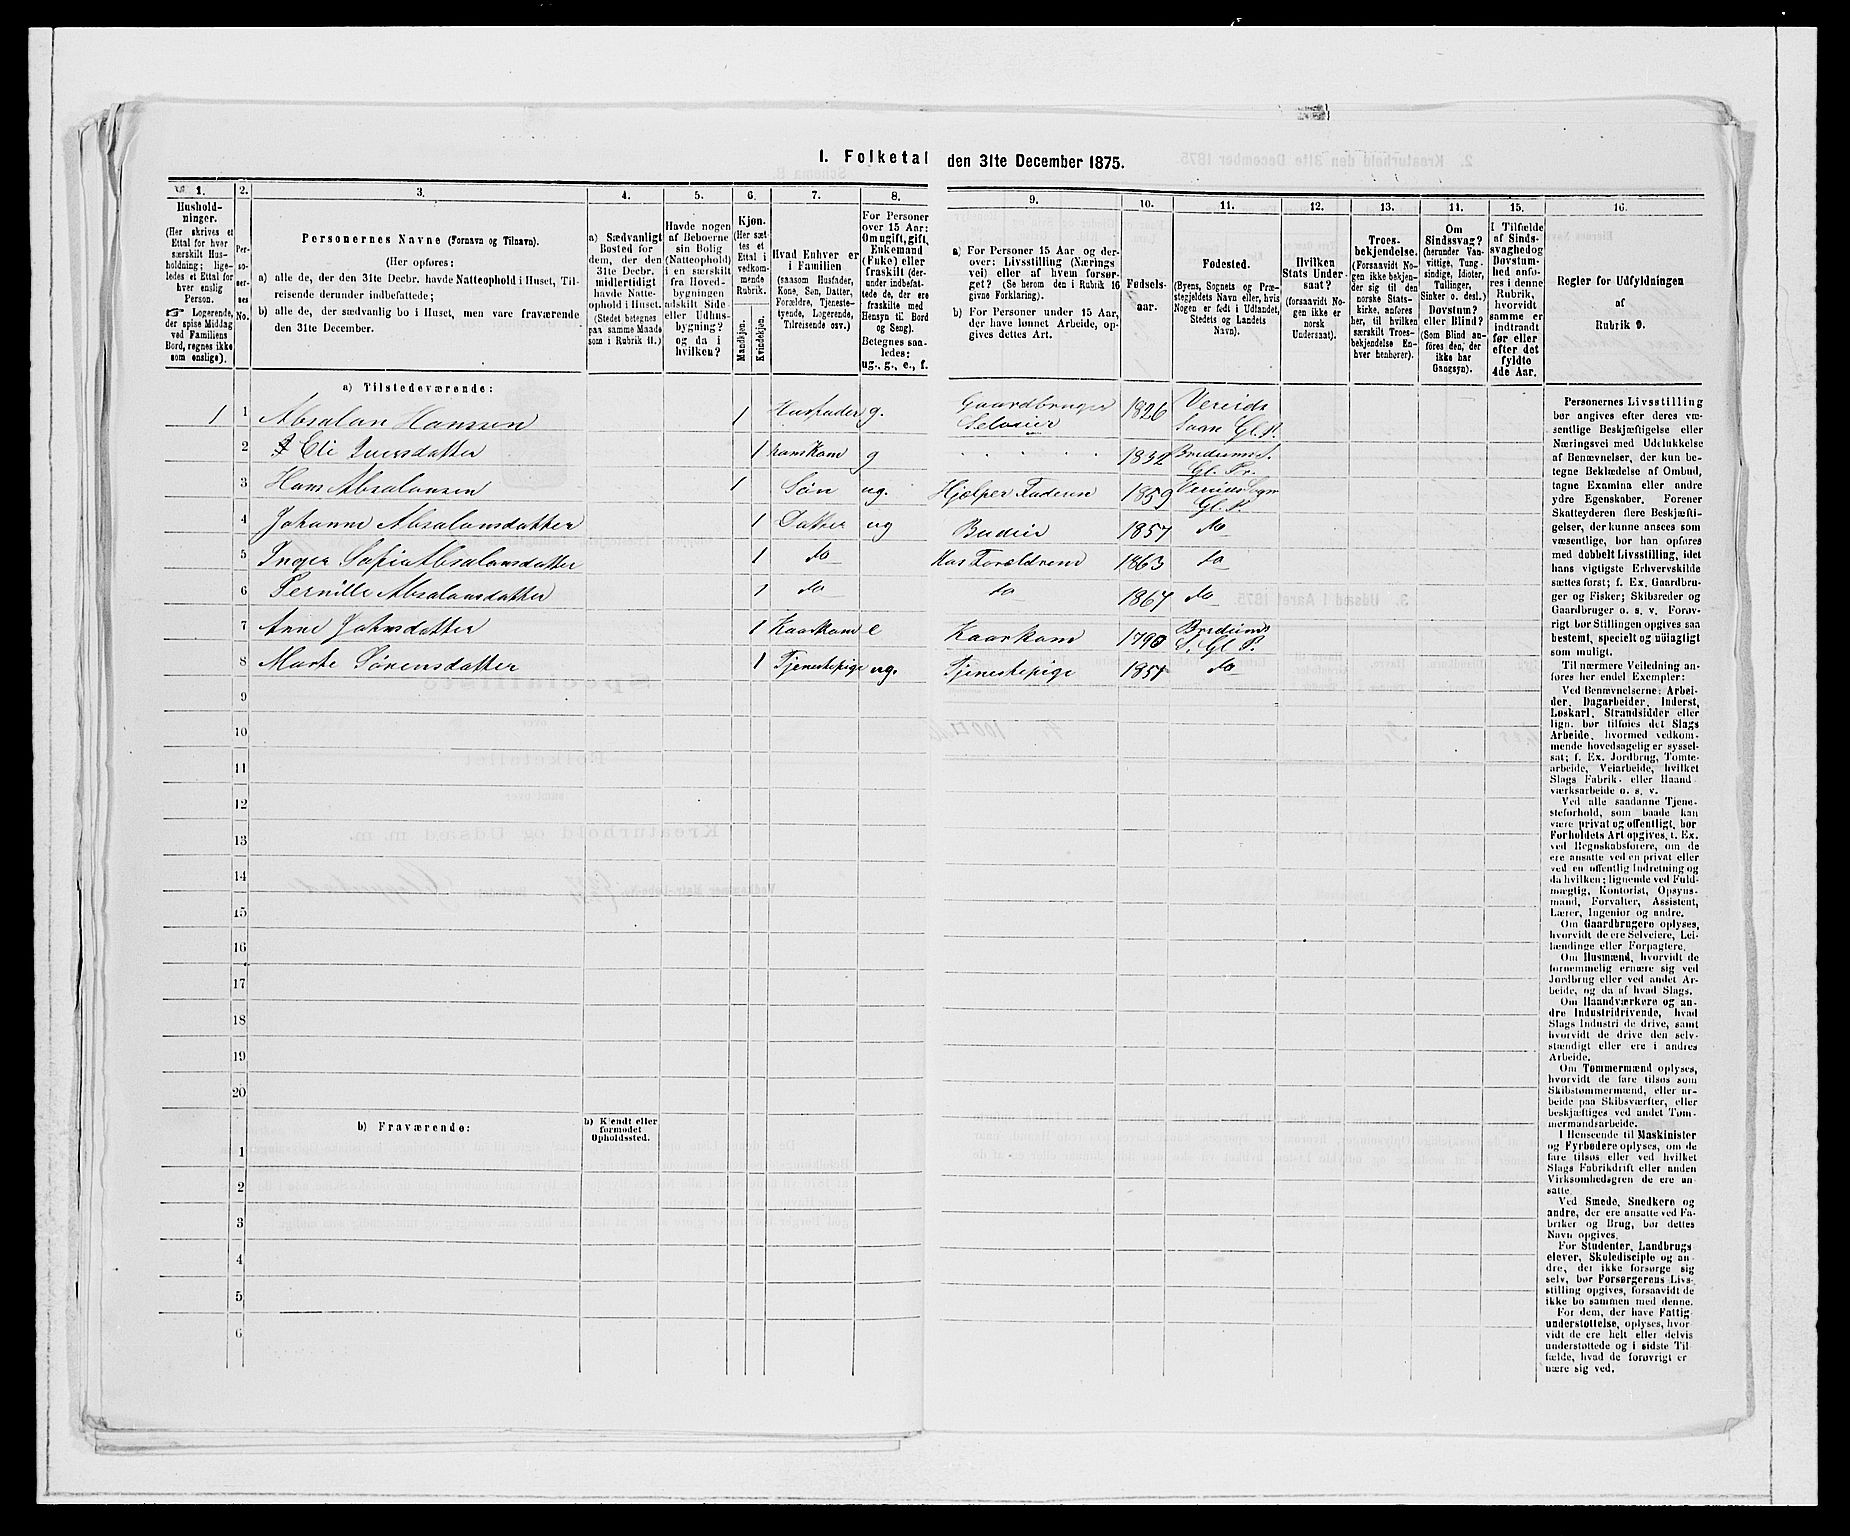 I. Folketal den 31te December 1875.
1.
Husholdninger.
(Her skrives et
Ettal for hver
særskilt Husholdning;
ligeledes et Ettal for
hver enslig
Person.
☞ Logerende,
der spise Middag
ved Familiens
Bord, regnes ikke
som enslige).
2.
Personernes
No.
3.
Personernes Navne (Fornavn og Tilnavn).
(Her opføres:
a) alle de, der den 31te Decbr. havde Natteophold i Huset, Tilreisende derunder indbefattede;
b) alle de, der sædvanlig bo i Huset, men vare fraværende
den 31te December.
4.
a) Sædvanligt
Bosted for
dem, der den
31te Decbr.
midlertidigt
havde Natteophold i Huset.
(Stedet betegnes
paa samme Maade
som i Rubrik 11.)
5.
Havde nogen
af Beboerne
sin Bolig
(Natteophold)
i en særskilt
fra Hovedbygningen
adskilt Side
eller Udhusbygning?
og da i
hvilken?
6.
Kjøn.
(Her sættes et
Ettal i
vedkommende
Rubrik.
Mandkjøn.
Kvindekjøn.
7.
Hvad Enhver er
i Familien
(saasom Husfader,
Kone, Søn, Datter,
Forældre, Tjenestetyende, Logerende,
Tilreisende osv.)
8.
For Personer
over 15 Aar:
Om ugift, gift,
Enkemand
(Enke) eller
fraskilt (derunder indbefattede de, der ere
fraskilte med
Hensyn til Bord
og Seng).
Betegnes saaledes:
ug., g., e., f.
9.
a) For Personer 15 Aar og derover: Livsstilling (Næringsvei) eller af hvem forsørget? (Se herom den i Rubrik 16
givne Forklaring).
b) For Personer under 15 Aar,
der have lønnet Arbeide, opgives dettes Art.
10.
Fødselsaar.
11.
Fødested.
(Byens, Sognets og Præstegjeldets Navn eller, hvis
Nogen er født i Udlandet,
Stedets og Landets
Navn).
12.
Hvilken
Stats Undersaat?
(forsaavidt Nogen ikke er
norsk
Undersaat).
13.
Troesbekjendelse.
(Forsaavidt Nogen ikke bekjender sig til den
norske Statskirke, anføres
her, til hvilken
særskilt Troesbekjendelse Enhver henhører).
14.
Om
Sindssvag?
(herunder Vanvittige, Tungsindige, Idioter,
Tullinger,
Sinker o. desl.)
Døvstum?
eller Blind?
(Som Blind anføres den, der
ikke har
Gangsyn).
15.
I Tilfælde
af Sindssvaghed og
Døvstumhed anføres i denne
Rubrik,
hvorvidt
samme er
indtraadt
før eller
efter det
fyldte
4de Aar.
16.
Regler for Udfyldningen
af
Rubrik 9.
a) Tilstedeværende:
1 1 Absalon Hanssen 1 Husfader g. Gaardbruger Selveier 1826 Vereids Sogn Gl. P.
2 Eli Iversdatter 1 hans Kone g 1832 Bredums S. Gl. Pr.
3 Hans Absalonsen 1 Søn ug. Hjælper Faderen 1859 Vereids Sogn Gl. P.
4 Johanne Absalonsdatter 1 Datter ug Budeie 1857 do
5 Inger Sofie Absalonsdatter 1 do Hos Forældrene 1863 do
6 Pernille Absalonsdatter 1 do do 1867 do
7 Anne Johnsdatter 1 Kaarkone e Kaarkone 1790 Bredums S. Gl. P.
8 Marte Sørensdatter 1 Tjenestepige ug. Tjenestepige 1851 do
9
10
11
12
13
14
15
16
17
18
19
20
b) Fraværende:
b) Kjendt eller
formodet
Opholdssted.
1
2
3
4
5
6
Personernes Livsstilling
bør angives efter deres væsentlige Beskjæftigelse eller
Næringsvei med Udelukkelse
af Benævnelser, der kun betegne Beklædelse af Ombud,
tagne Examina eller andre
ydre Egenskaber. Forener
Skatteyderen flere Beskjæftigelser, der kunne ansees som
væsentlige, bør han opføres
med dobbelt Livsstilling, idet
hans vigtigste Erhvervskilde
sættes først; f. Ex. Gaardbruger og Fisker; Skibsreder og
Gaardbruger o. s. v. Forøvrigt bør Stillingen opgives saa
bestemt, specielt og nøiagtigt
som muligt.
Til nærmere Veiledning anføres her endel Exempler:
Ved Benævnelserne: Arbeider, Dagarbeider, Inderst,
Løskarl, Strandsidder eller
lign. bør tilføies det Slags
Arbeide, hvormed vedkommende hovedsagelig er sysselsat; f. Ex. Jordbrug, Tomtearbeide, Veiarbeide, hvilket
Slags Fabrik- eller Haandværksarbeide o. s. v.
Ved alle saadanne Tjenesteforhold, som baade kan
være privat og offentligt, bør
Forholdets Art opgives, t. Ex.
ved Regnskabsførere, om de
ere ansatte ved en privat eller
ved en offentlig Indretning og
da hvilken; lignende ved Fuldmægtig, Kontorist, Opsynsmand, Forvalter, Assistent,
Lærer, Ingeniør og andre.
Om Gaardbrugere oplyses,
hvorvidt de ere Selveiere, Leilændinge eller Forpagtere.
Om Husmænd, hvorvidt de
fornemmelig ernære sig ved
Jordbrug eller ved andet Arbeide, og da af hvad Slags.
Om Haandværkere og andre Industridrivende, hvad
Slags Industri de drive, samt
hvorvidt de drive den selvstændigt eller ere i andres
Arbeide.
Om Tømmermænd oplyses,
hvorvidt de fare tilsøs som
Skibstømmermænd, eller arbeide paa Skibsværfter, eller
beskjæftiges ved andet Tømmermandsarbeide.
I Henseende til Maskinister
og Fyrbødere oplyses, om de
fare tilsøs eller ved hvilket
Slags Fabrikdrift eller anden
Virksomhedsgren de ere ansatte.
Ved Smede, Snedkere og
andre, der ere ansatte ved Fabriker og Brug, bør dettes
Navn opgives.
For Studenter, Landbrugselever, Skoledisciple og andre, der ikke forsørge sig
selv, bør Forsørgerens Livsstilling opgives, forsaavidt de
ikke bo sammen med denne.
For dem, der have Fattigunderstøttelse, oplyses, hvorvidt de ere helt eller delvis
understøttede og i sidste Tilfælde, hvad de forøvrigt er
nære sig ved.